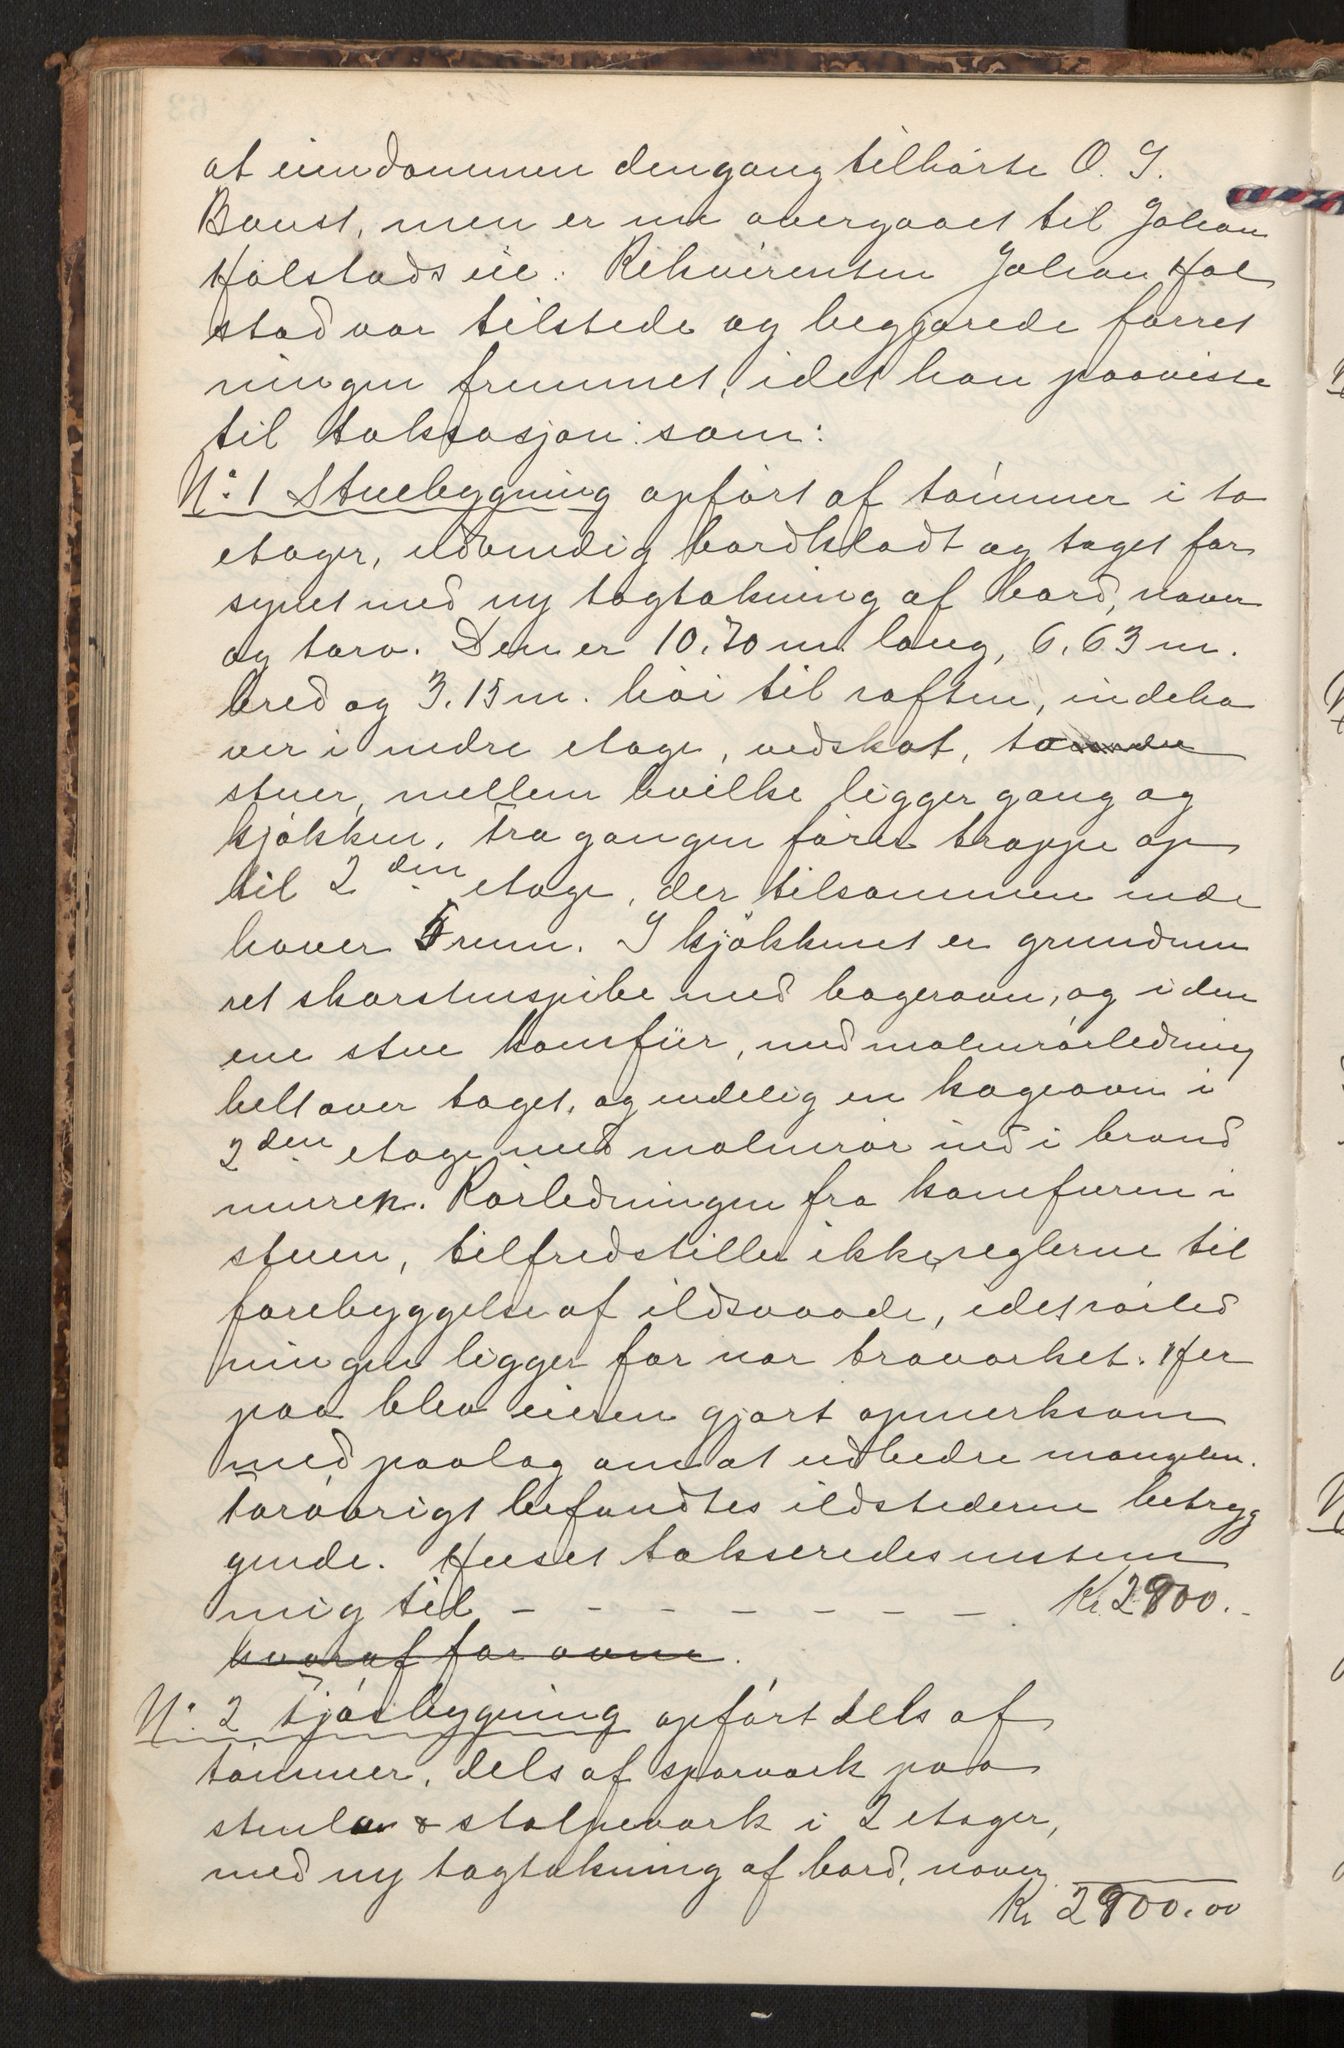 at eiendommen dengang tilhørte O. J.
Boust, men er nu overgaaet til Johan
Halstads eie. Rekvirenten Johan Hal
stad var tilstede og begjærede forret
ningen fremmet, idet han paaviste
til takstasjon som:
No. 1 Stuebygning opført af tømmer i to
etager, udvendig bordklædt og taget for
synet med ny tagtækning af bord, næver
og torv. Den er 10.70 m. lang, 6.63 m.
bred og 3.15 m. høi til raften, indeha
ver i nedre etage, vedskot, to
stuer, mellem hvilke ligger gang og
kjøkken. Fra gangen fører trappe op
til 2den etage, der tilsammen inde
haver 5 rum. I kjøkkenet er grundmu
ret skorstenspibe med bagerovn, og i den
ene stue komfür, med malmrørledning
helt over taget, og endelig en kogeovn i
2den etage med malmrør ind i brand
muren. Rørledningen fra komfuren i
stuen, tilfredstiller ikke reglerne til
forebyggelse af ildsvaade, idet rørled
ningen ligger for nær træverket. Her
paa blev eieren gjort opmerksom
med paalæg om at udbedre mangelen.
Forøvrigt befandtes ildstederne betryg
gende. Huset takseredes enstem
mig til - - - - - - - - Kr. 2900.-
hvoraf for ovne.
No. 2 Fjøsbygning opført dels af
tømmer, dels af sparværk paa
stenler & stolpeværk i 2 etager,
med ny tagtækning af bord, næver
Kr 2900.00